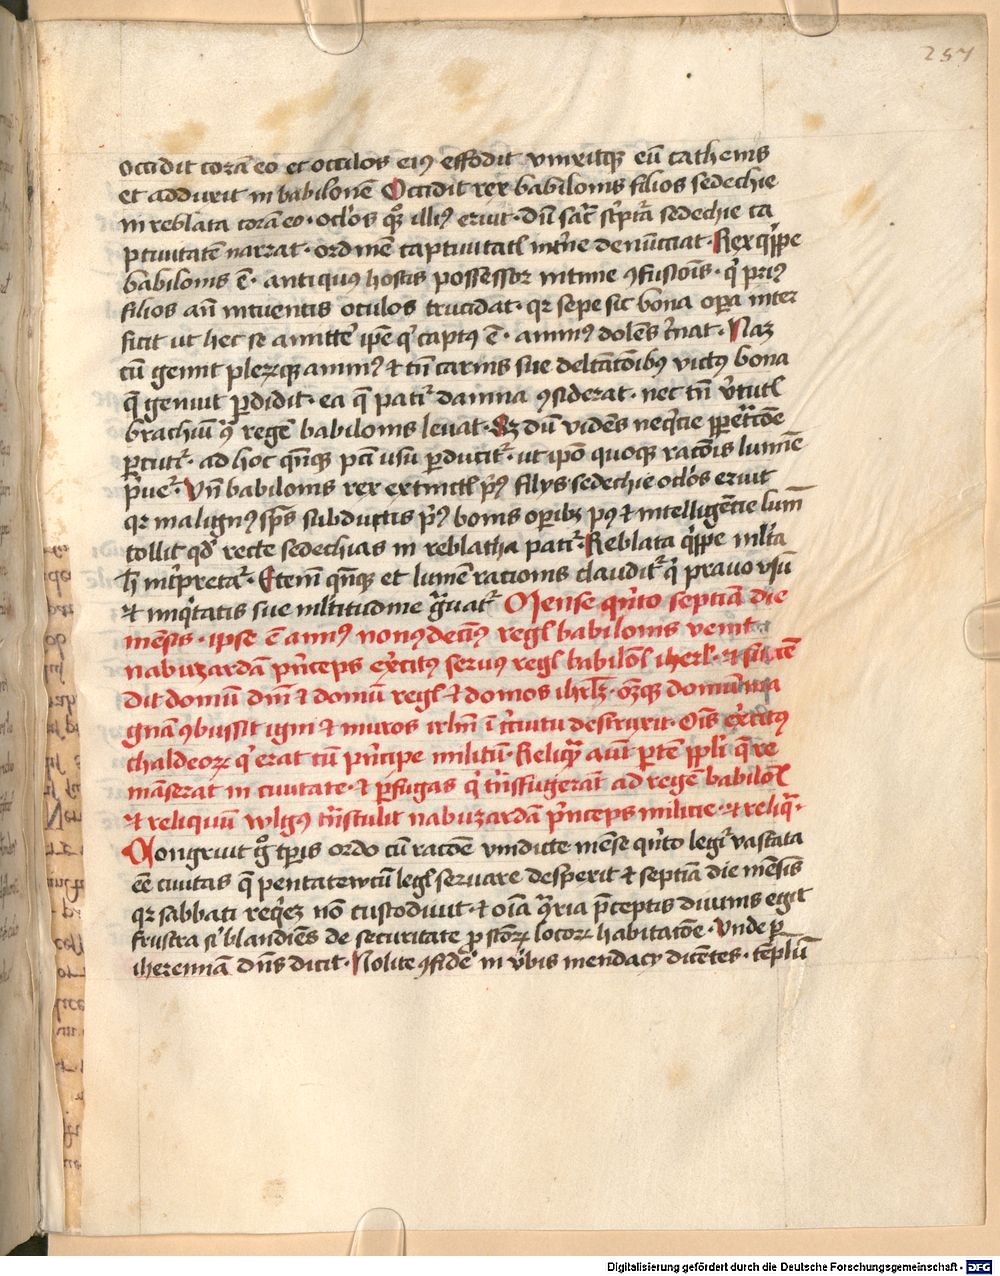 257
occidit corā eo et occulos eiꝰ effodit vinxitqꝫ eū cathenis
et adduxit in babilonē Occidit rex babilonis filios sedechie
in reblata corā eo · oc̄los qꝫ illiꝰ eruit · dū sac̄ sc̄pt̄a sedechie ca
ptiuitatē narrat · ordinē captiuitatꝭ int̄ne denūcciat · Rex q̄ppe
babilonis ē · antiquꝰ hostis possessor intime ꝯfusiois̄ · q̄ priꝰ
filios an̄ intuentis oculos trucidat · qꝛ sepe sic bona oꝑa inter
ficit ut hec se amitte᷑ ip̄e q̄ captꝰ ē · animꝰ dolēs c̄nat · Naꝫ
cū gemit pleꝛūqꝫ animꝰ et tn̄ carnis sue delc̄tatōibꝰ victꝰ bona
q̄ genuit ꝑdidit · ea q̄ patit᷑ dāmna ꝯsiderat · nec tn̄ v̄tutꝭ
brachiū ꝯ̄ regē babilonis leuat · Sꝫ dū vidēs neq̄cie ꝑpet̄cōe
ꝑcutit᷑ · ad hoc qn̄qꝫ pc̄i usu ꝑducit᷑ · ut ip̄o quoqꝫ racōis lumīe
p̄uet᷑ · Vn̄ babilonis rex extinctꝭ pͥꝰ filijs sedechie oc̄los eruit
qꝛ malignꝰ sp̄s subductis pͥꝰ bonis oꝑibꝫ pꝰ et intelligētie lum̄
tollit qd̄ recte sedechias in reblatha patit᷑ · Reblata q̄ppe ml̄ta
h̄ int̄pretat᷑ · Etem̄ qn̄qꝫ et lumē racionis claudit᷑ q̄ prauo vsu
et iniq̄tatis sue ml̄titudine g̃uat᷑ Mense qͥnto septiā die
mēsis · ipse ē annꝰ nonꝰ deciꝰ regꝭ babilonis venit
nabuzardā pͥnceps ex̄citꝰ seruus regꝭ babilōꝭ iherl̄ · et succē
dit domū dn̄i et domū regꝭ et domos ihrl̄ꝫ · oēꝫqꝫ domū ma
gnā ꝯbussit igni et muros irlm̄ ī c̄cuitu destruxit · Oīs ex̄citꝰ
chaldeoꝝ q̄ erat cū pͥncipe militū · Reliq̄ aūt ꝑtē ppl̄i q̄ re
māserat in ciuitate · et ꝑfugas q̄ tn̄sfugerāt ad regē babilōꝭ
et reliquū wlgꝰ tn̄stulit nabuzardā pͥnceps milicie · et reliq̄ ·
Congruit gͦ tp̄is ordo cū racōe vindicte mēse qͥnto legit᷑ vastata
eē ciuitas q̄ pentateucū legꝭ seruare despexit et septiā die mēsis
qꝛ sabbati req̄eꝫ nō custodiuit · et oīa q̄ria p̄ceptis diuinis egit
frustra sͥ blandiēs de securitate ꝑ stōꝝ locoꝝ habitatōe · Vnde ꝑ
iheremiā dn̄s dicit · Nolite ꝯfide᷑ in v̄bis mendacij dicētes · tēplū
Digitalisierung gefördert durch die Deutsche Forschungsgemeinschaft - DFG